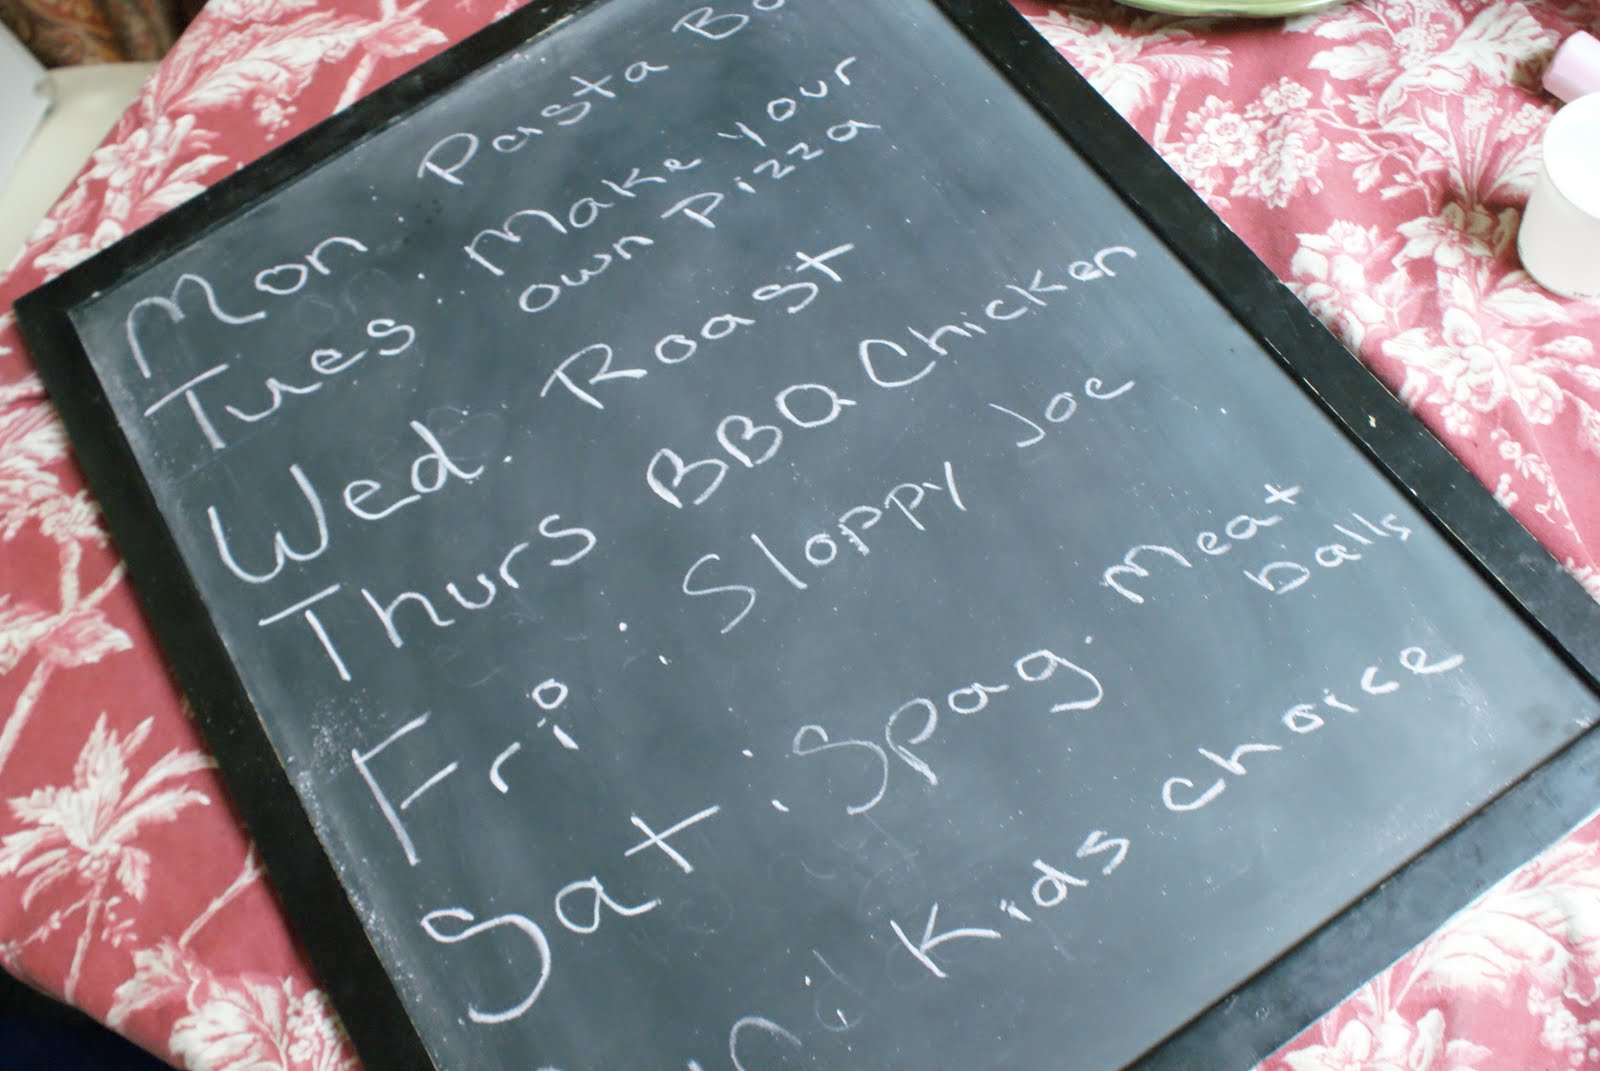 Mon : Pasta
Tues : Make your
own Pizza
Wed. Roast
Thurs BBQ Chicken
Fri : Sloppy Joe
Sat : Spag. Meat
balls
Kids Choice